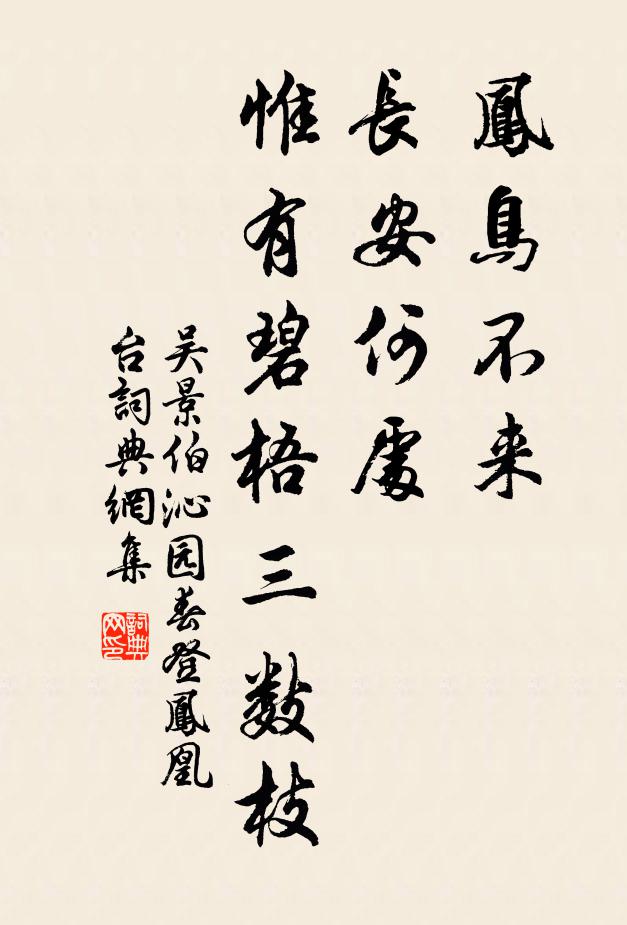 鳳鳥不来
長安何處
惟有碧梧三數枝
吴景伯沁园春登鳳凰
台詞典網集
詞典
网印